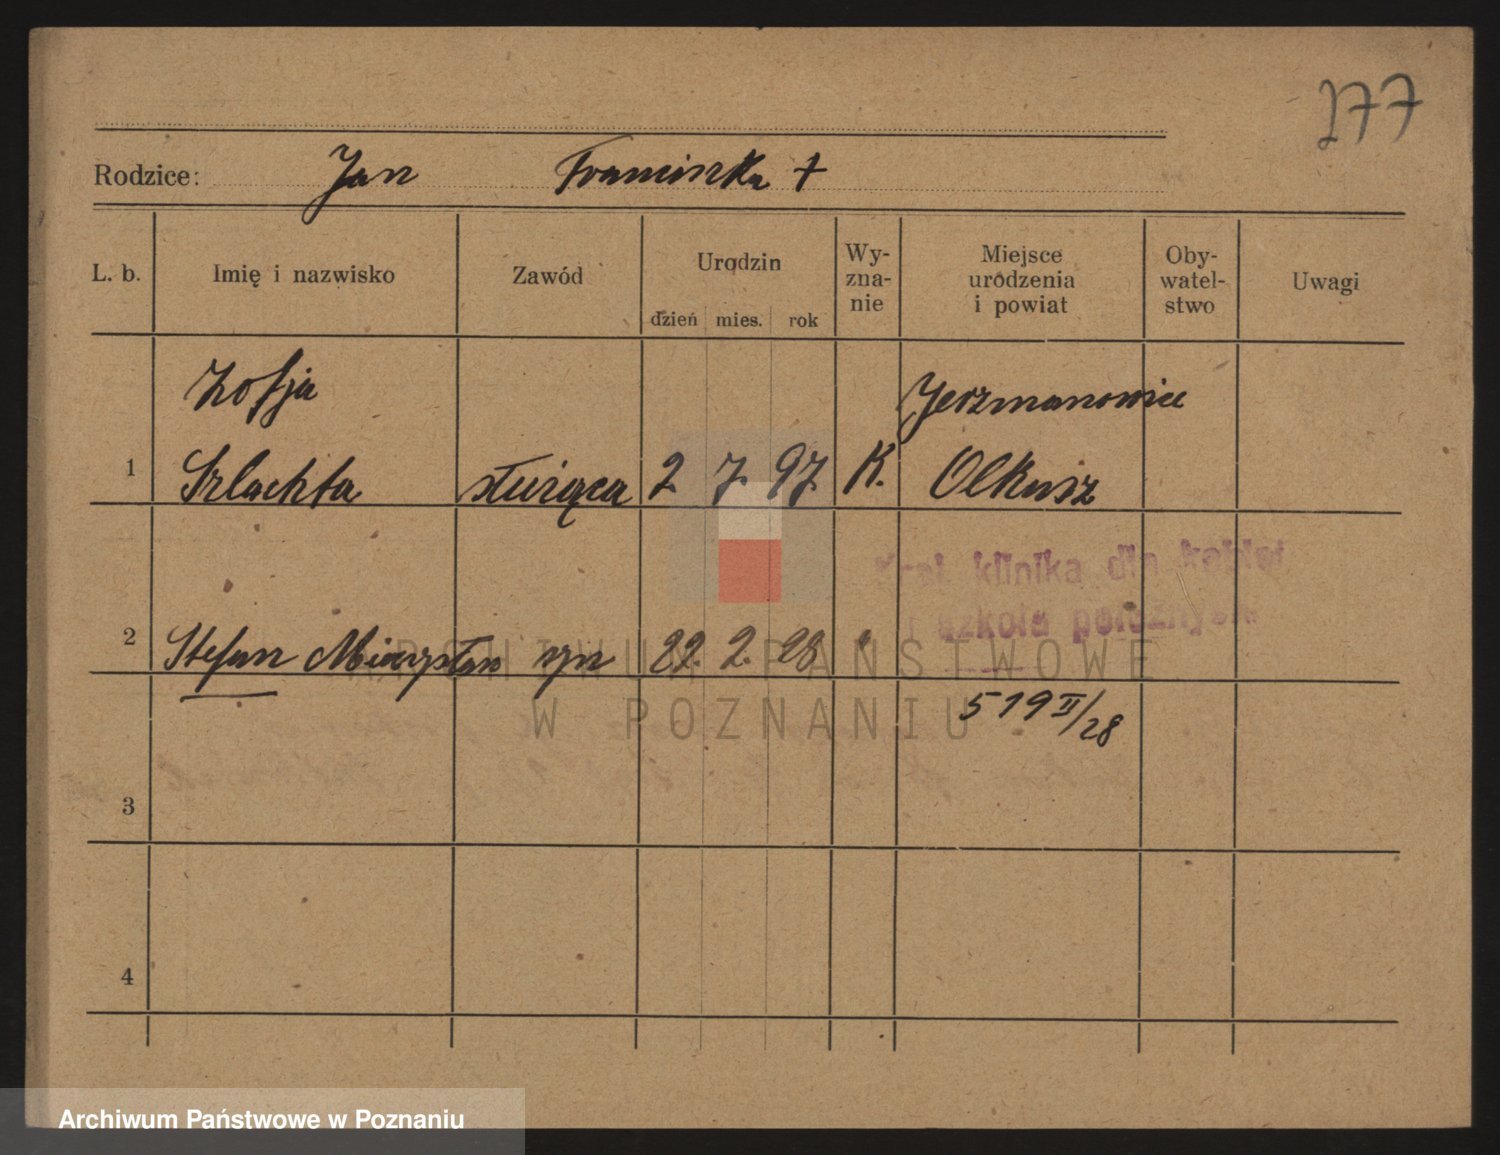 277
Rodzice: Jan Franciszka +
L. b. Imię i nazwisko Zawód Urodzin dzień mies. rok Wy-zna-nie Miejsce urodzenia i powiat Oby-watel-stwo Uwagi
Zofja Jerzmanowice
1 Szlachta służąca 2 7 97 K. Olkusz
klinika dla kobiet
i szkoła położnych
2 Stefan Mieczysław syn 22. 2. 28 "
ARCHIWUM PAŃSTWOWE
W POZNANIU
519 II/28
3
4
Archiwum Państwowe w Poznaniu